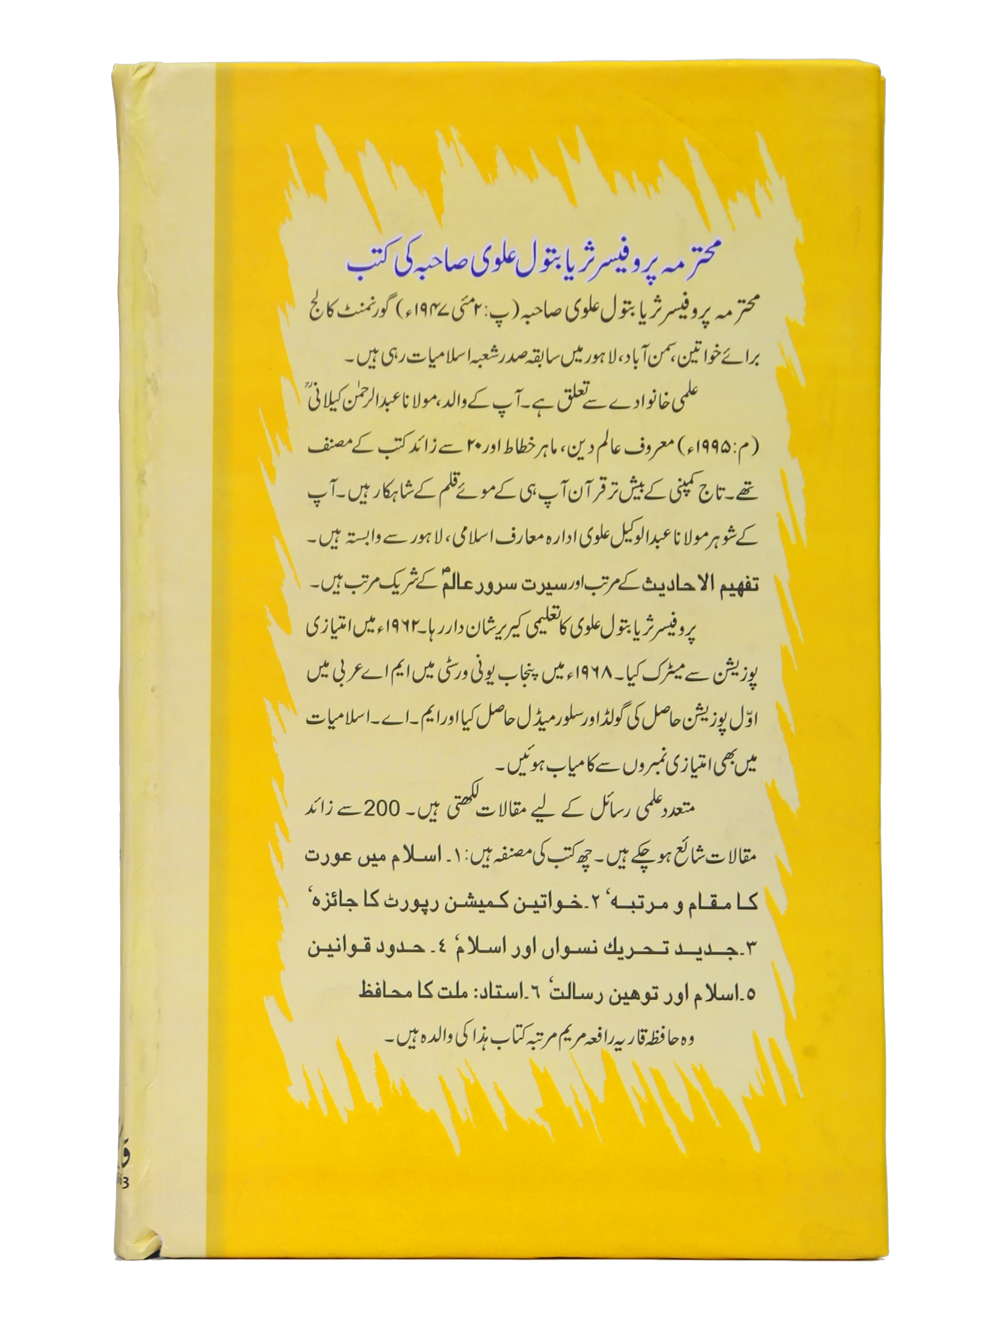 محترمہ پروفیسر ثریا بتول علوی صاحبہ کی کتب
محترمہ پروفیسر ثریا بتول علوی صاحبہ (پ: ۲ مئی ۱۹۴۷ء) گورنمنٹ کالج
برائے خواتین، سمن آباد، لاہور میں سابقہ صدر شعبہ اسلامیات رہی ہیں۔
علمی خانوادے سے تعلق ہے۔ آپ کے والد، مولانا عبدالرحمٰن کیلانیؒ
(م: ۱۹۹۵ء) معروف عالم دین، ماہر خطاط اور ۲۰ سے زائد کتب کے مصنف
تھے۔ تاج کمپنی کے بیش تر قرآن آپ ہی کے موئے قلم کے شاہکار ہیں۔ آپ
کے شوہر مولانا عبدالوکیل علوی ادارہ معارف اسلامی، لاہور سے وابستہ ہیں۔
تفہیم الاحادیث کے مرتب اور سیرت سرور عالمؐ کے شریک مرتب ہیں۔
پروفیسر ثریا بتول علوی کا تعلیمی کیریر شان دار رہا۔ ۱۹۶۲ء میں امتیازی
پوزیشن سے میٹرک کیا۔ ۱۹۶۸ء میں پنجاب یونی ورسٹی میں ایم اے عربی میں
اوّل پوزیشن حاصل کی گولڈ اور سلور میڈل حاصل کیا اور ایم۔اے۔ اسلامیات
میں بھی امتیازی نمبروں سے کامیاب ہوئیں۔
متعدد علمی رسائل کے لیے مقالات لکھتی ہیں۔ 200 سے زائد
مقالات شائع ہو چکے ہیں۔ چھ کتب کی مصنفہ ہیں: ۱۔ اسلام میں عورت
کا مقام و مرتبہ‘ ۲۔خواتین کمیشن رپورٹ کا جائزہ‘
۳۔جدید تحریک نسواں اور اسلام‘ ۴۔ حدود قوانین
۵۔اسلام اور توہین رسالت‘ ۶۔استاد: ملت کا محافظ
وہ حافظہ قاریہ رافعہ مریم مرتبہ کتاب ہذا کی والدہ ہیں۔